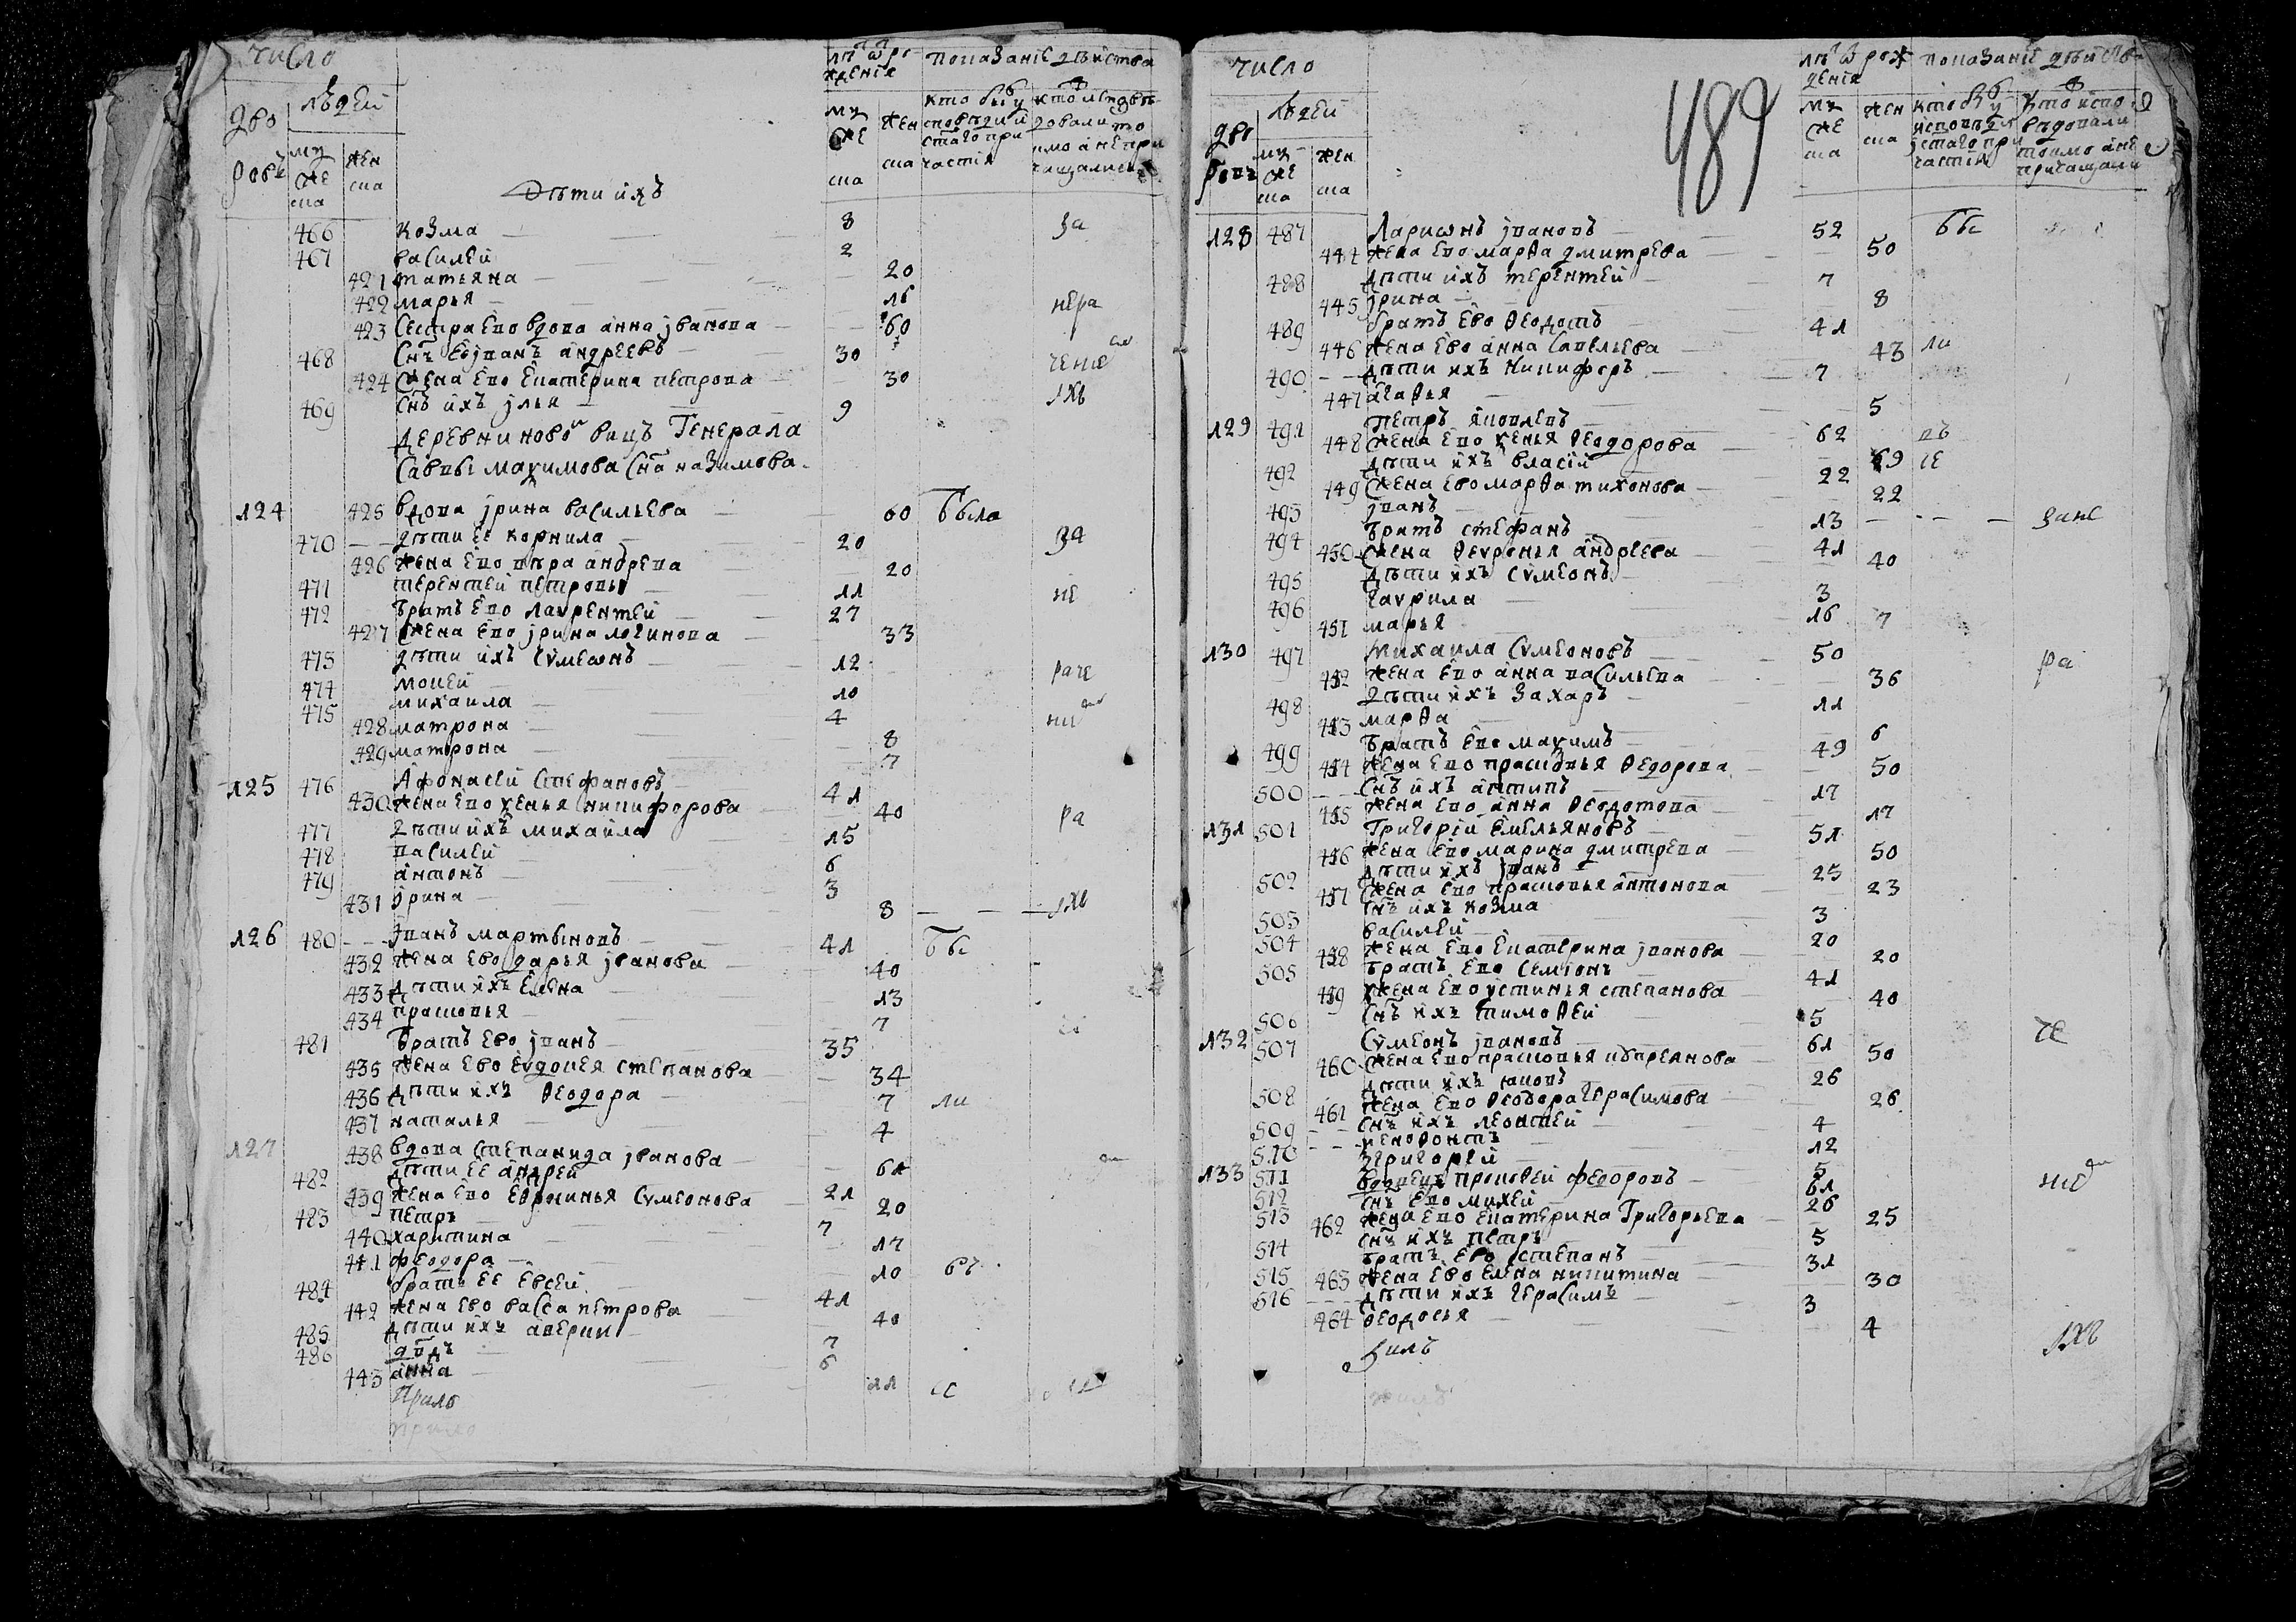 число
лѣт ѿ рож
дения
показание действа
дво
ровъ
людей
му
же
ска
жен
ска
Дѣти ихъ
му
же
ска
жен
ска
466 козма 8 за
467 василей 2
421 татьяна 20
422 марья 16 нера
423 Сестра ево вдова анна іванова 60
468 Снъ ее іванъ андреевъ 30
424 Жена ево екатерина петрова 30
469 Снъ ихъ илья 9 яхъ
Деревни новой вицъ Генерала
Саввы максимова Сна назимова
124 425 вдова ірина васильева 60 была
470 дѣти ее корнила 20 за
426 жена ево вѣра андрева 20
471 терентей петровы 11 не
472 братъ ево лаврентей 27
427 жена ево ірина логинова 33
473 дѣти ихъ Сумеѡнъ 12 раче
474 мокей 10
475 михаила 4
428 матрона 8
429 матрона 7
125 476 Афонасей Стефановъ 41
430 жена ево ксенья никифорова 40
477 Дѣти ихъ михаила 15 ра
478 василей 6
479 антонъ 3
431 орина 8 яхъ
126 480 іванъ мартыновъ 41 бы
432 жена ево дарья іванова 40
433 дѣти ихъ елена 13
434 прасковья 7
481 братъ ево іванъ 35
435 жена ево евдокея степанова 34
436 дѣти ихъ Ѳеодора 7 ли
437 наталья 4
127 438 вдова Степанида іванова 61
482 дѣти ее андрей 21
439 жена ево Евросинья Сумеонова 20
483 петръ 7
440 харитина 17
441 феодора 10
484 братъ ее евсей 41
442 жена ево васса петрова 40
485 дѣти ихъ аверки 7
486 двдъ 6
443 анна 11
число
лѣт ѿ рож
дения
показание действа
489
дво
ровъ
людей
му
же
ска
жен
ска
му
же
ска
жен
ска
128 487 Лариѡнъ івановъ 52 бы
444 жена ево марѳа дмитрева 50
488 дѣти ихъ терентей 7
445 ірина 8
489 братъ ево Ѳеодотъ 41
446 жена ево анна савельева 43 ли
490 дѣти ихъ никифоръ 7
447 агаѳья 5
129 491 петръ яковлевъ 62 въ
448 жена ево ксенья Ѳеодорова 69
492 дѣти ихъ власій 22
449 жена ево марѳа тихонова 22
493 іванъ 13
494 братъ стефанъ 41
450 жена Ѳевронья андреева 40
495 дѣти ихъ Сумеонъ 3
496 гаврила 16
451 марья 7
130 497 михаила Сумеоновъ 50 ра
452 жена ево анна васильева 36
498 дѣти ихъ захаръ 11
453 марѳа 6
499 братъ ево максимъ 49
454 жена ево прасковья Ѳедорова 50
500 Снъ ихъ антипъ 17
455 жена ево анна Ѳеодотова 17
131 501 Григорій емельяновъ 51
456 жена ево марина дмитрева 50
502 дѣти ихъ іванъ 25
457 жена ево прасковья антонова 23
503 Снъ ихъ козма 3
504 василей 20
458 жена ево екатерина іванова 20
505 братъ ево Семионъ 41
459 жена ево устинья степанова 40
506 Снъ ихъ тимоѳей 5
132 507 Сумеонъ івановъ 61 че
460 жена ево прасковья купреянова 50
508 дѣти ихъ яковъ 26
461 жена ево Ѳеодора герасимова 26
509 Снъ ихъ леонтей 4
510 ксенофонтъ 12
511 григорей 5
133 512 вдовецъ прокофей федоровъ 61
513 Снъ ево михей 26
462 жена ево екатерина Григорьева 25
514 Снъ ихъ петръ 5
515 братъ ево степанъ 31
463 жена ево елена никитина 30
516 дѣти ихъ герасимъ 3
464 Ѳеодосья 4 яхъ